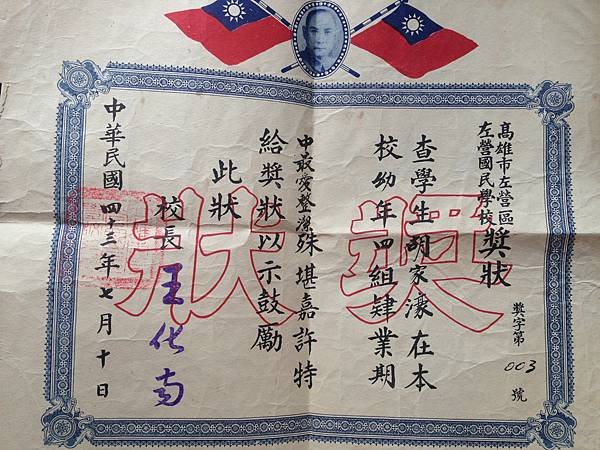 高雄市左營區
左營國民學校
獎狀
獎字第003號
查學生胡家濠在本
校幼年四組肄業期
中最愛整潔殊堪嘉許特
給獎狀以示鼓勵
此狀
校長 王化南
中華民國四十三年七月十日
獎狀